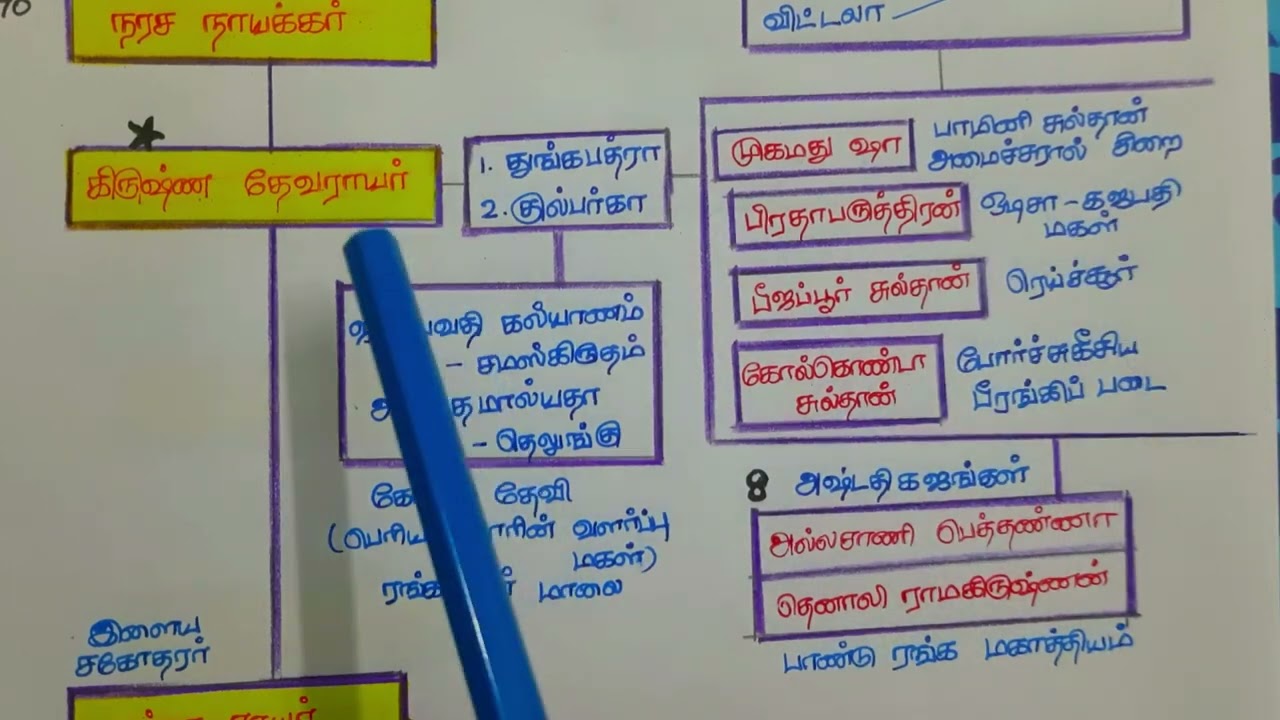 70
நரச நாயக்கர்
விட்டலா
கிருஷ்ண தேவராயர்
1. துங்கபத்ரா
2. குல்பர்கா
முகமது ஷா
பாமினி சுல்தான்
அமைச்சரால் சிறை
பிரதாபருத்திரன்
ஒடிசா - கஜபதி
மகள்
பீஜப்பூர் சுல்தான்
ரெய்ச்சூர்
கோல்கொண்டா
சுல்தான்
போர்ச்சுகீசிய
பீரங்கிப் படை
கல்யாணம்
- சமஸ்கிருதம்
- தெலுங்கு
தேவி
வளர்ப்பு
மகள்)
மாலை
8 அஷ்டதிகஜங்கள்
அல்லசாணி பெத்தண்ணா
தெனாலி ராமகிருஷ்ணன்
பாண்டு ரங்க மகாத்தியம்
இளைய
சகோதரர்